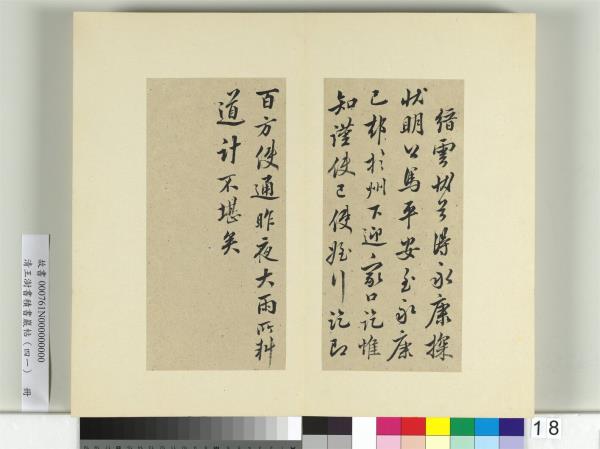 縉雲狀
得永康探
狀明公馬平安至永康
已
於州下迎家口訖惟
知謹使已使
行訖即
百方使通昨夜大雨所料
道計不堪矣
故書 000761N000000000
清王澍書積書巖帖(四一) 冊
18